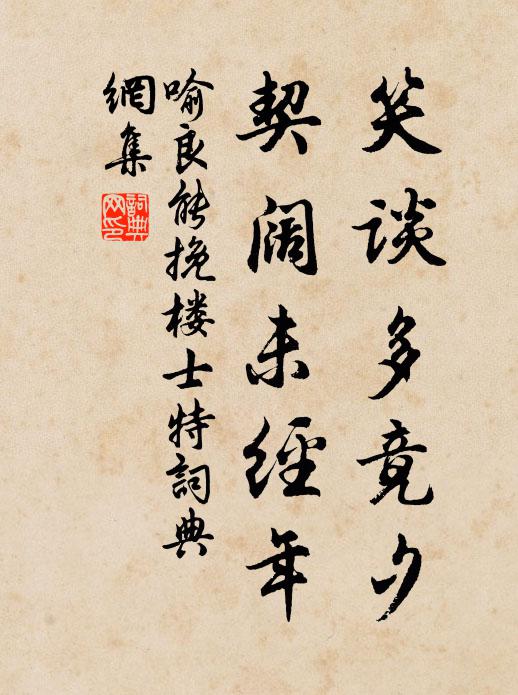 笑谈多竟夕
契阔未經年
喻良能挽楼士特詞典
網集
詞典
网印